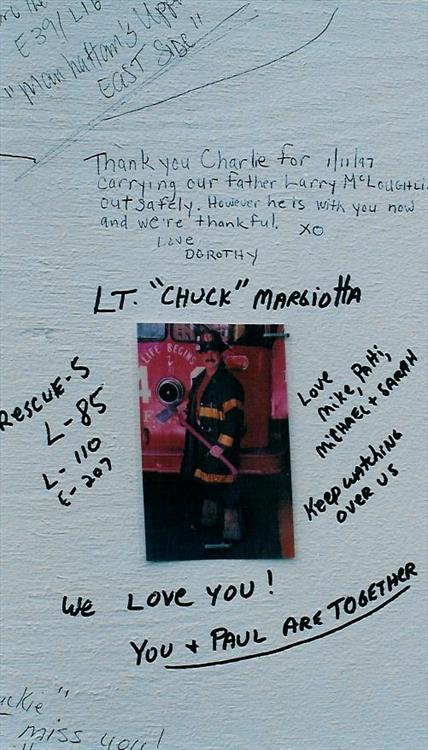 E39/L16
"Manhattan's Upp
EAST SIDE"
Thank you Charlie for 1/11/97
carrying our father Larry McLoughli
out safely. However he is with you now
and we're thankful. XO
Love
DOROTHY
LT. "CHUCK" MARGIOTTA
LIFE BEGINS
4
RESCUE-5
L-85
L-110
E-207
Love
Mike, Patti,
MICHAEL + SARAH
Keep watching
OVER US
We LOVE YOU!
YOU + PAUL ARE TOGETHER
ackie"
miss you!